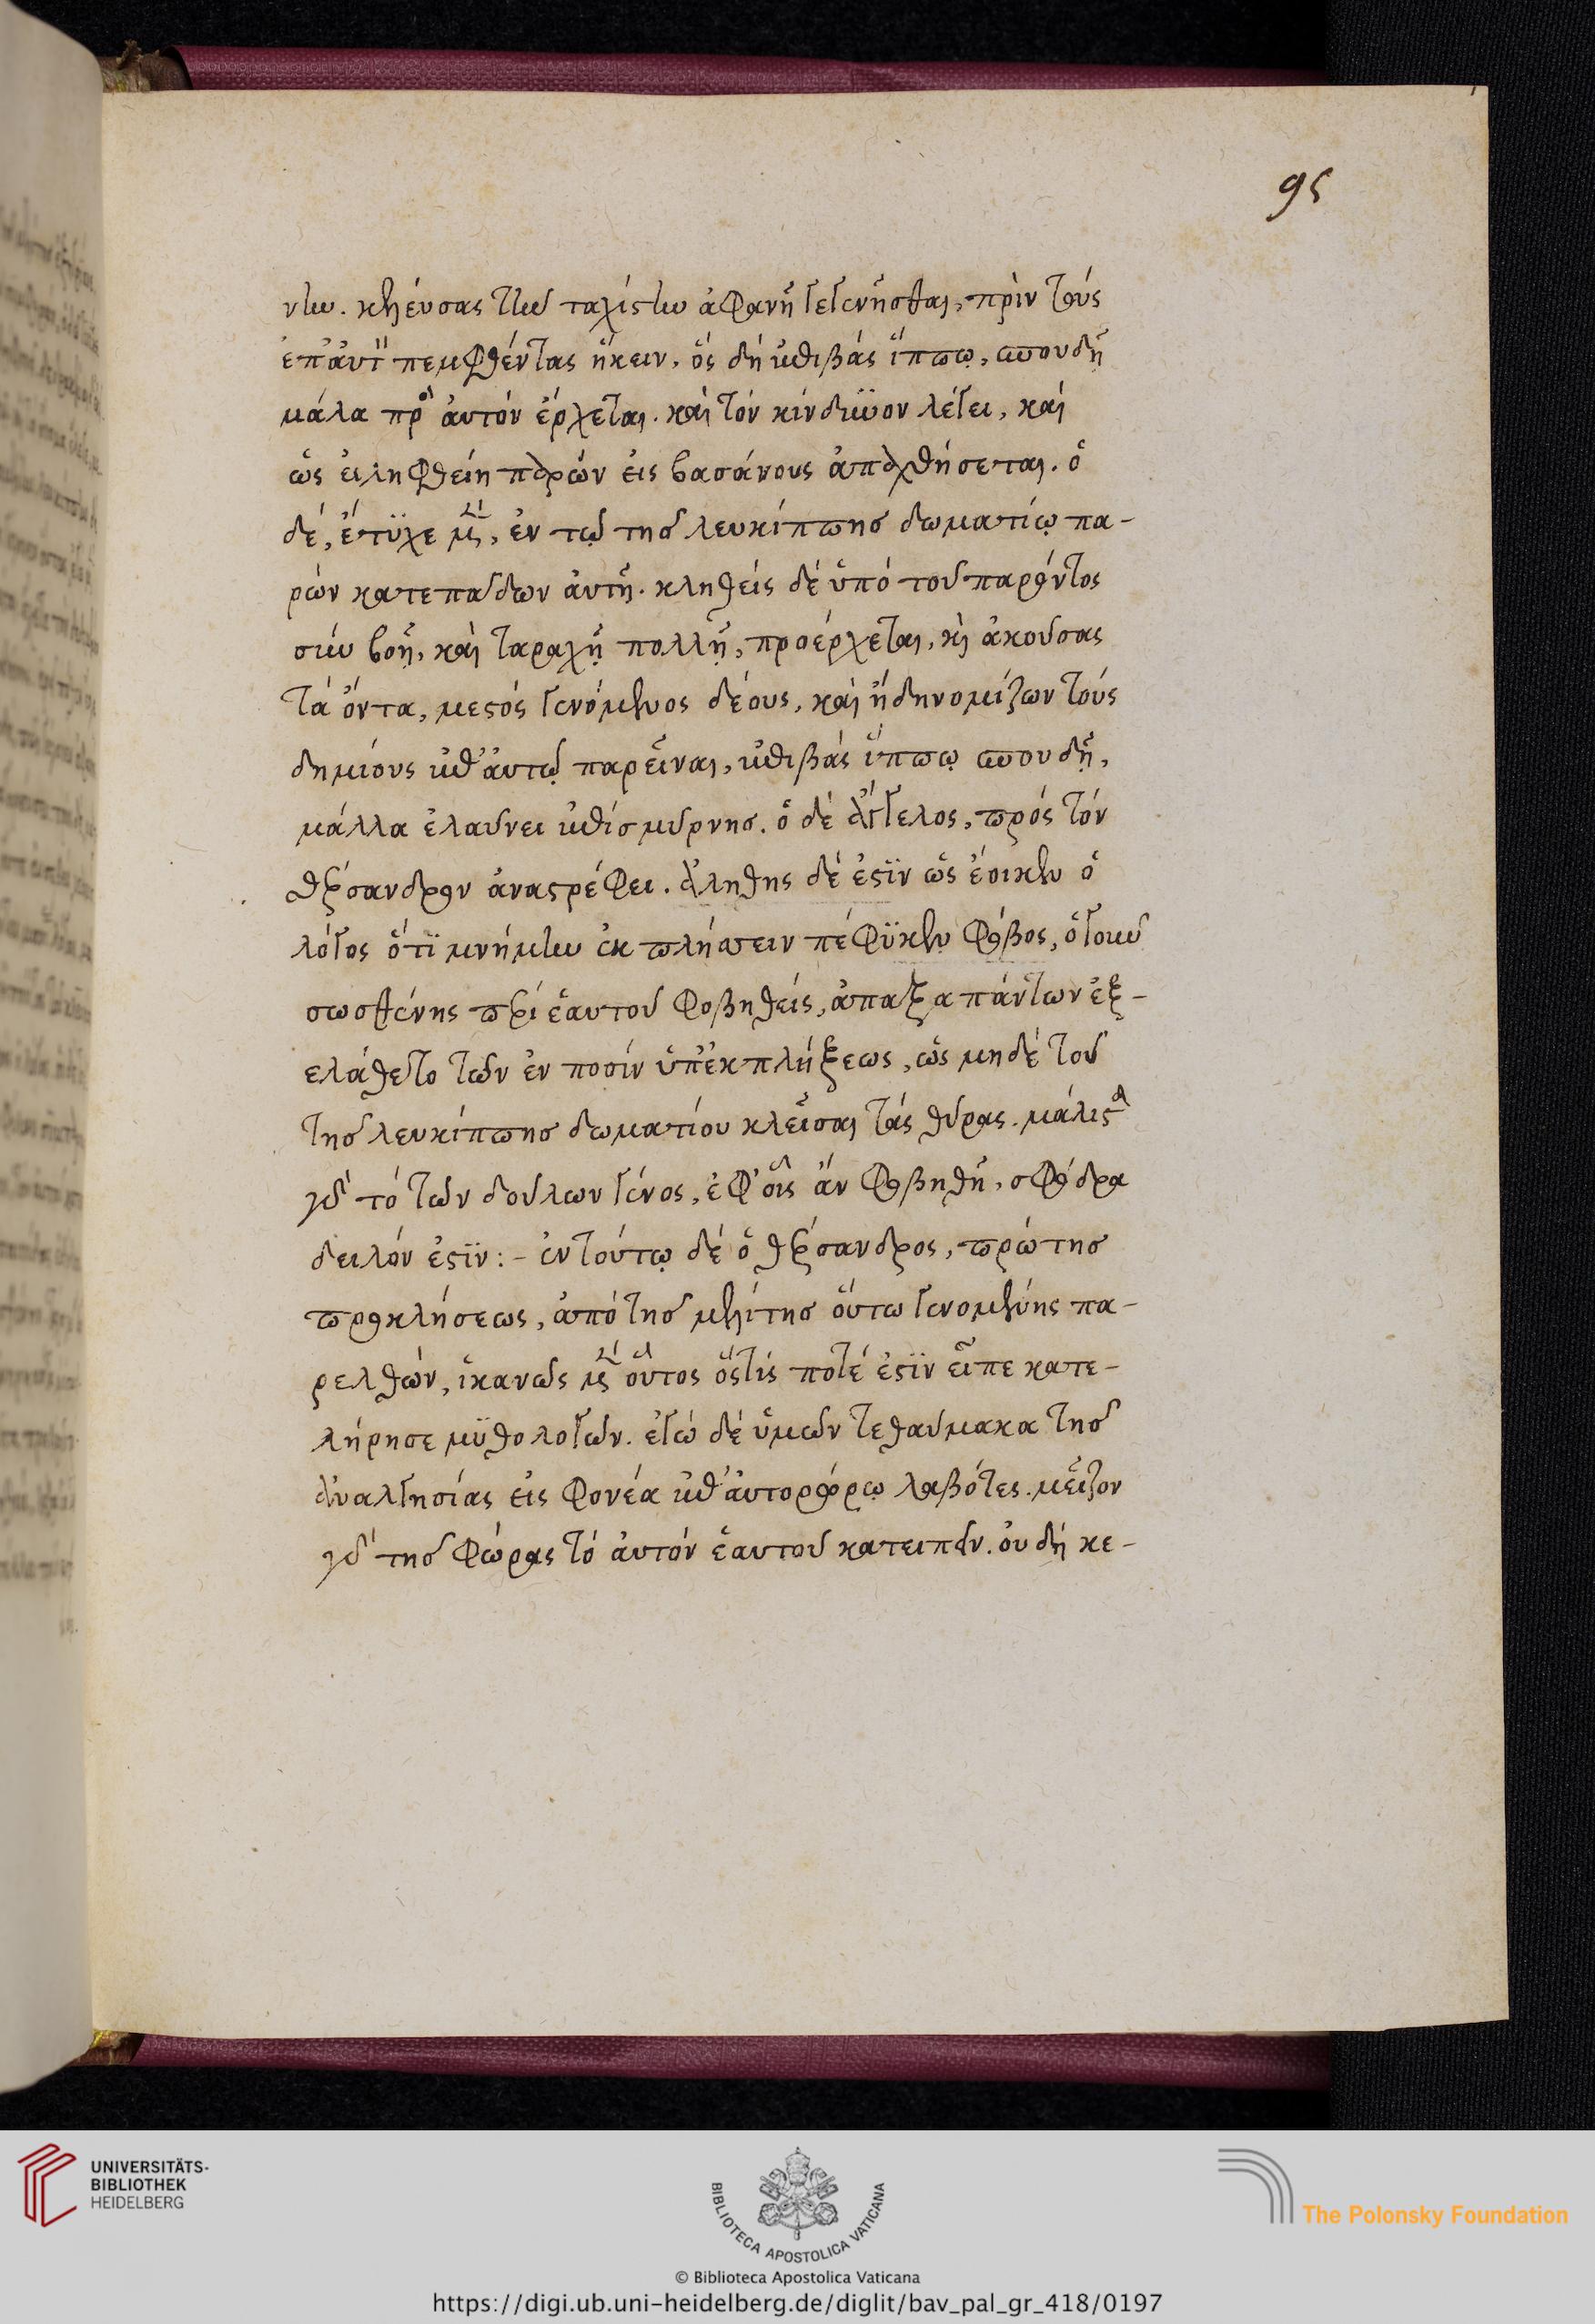 95
νην. κελεύσας τὴν ταχίστην ἀφανῆ γεγενῆσθαι, πρὶν τοὺς
ἐπ' αὐτ πεμφθέντας ἥκειν. ὃς δὴ ἐπιβὰς ἵππῳ, σπουδῇ
μάλα πρὸς αὐτὸν ἔρχεται. καὶ τὸν κίνδυνον λέγει, καὶ
ὡς εἰ ληφθείη παρὼν εἰς βασάνους ἀπαχθήσεται. ὁ
δέ, ἔτυχε μὲν, ἐν τῷ τῆς λευκίππης δωματίῳ πα-
ρὼν κατεπᾴδων αὐτῇ. κληθεὶς δὲ ὑπὸ τοῦ παρόντος
σὺν βοῇ, καὶ ταραχῇ πολλῇ, προέρχεται, κ̀ ἀκούσας
τὰ ὄντα, μεστὸς γενόμενος δέους, καὶ ἤδη νομίζων τοὺς
δημίους ἐπ' αὐτῷ παρεῖναι, ἐπιβὰς ἵππῳ σπουδῇ,
μάλλα ἐλαύνει ἐπὶ σμύρνης. ὁ δὲ ἄγγελος, πρὸς τὸν
θέρσανδρον ἀναστρέφει. ἀληθὴς δέ ἐστὶν ὡς ἔοικεν ὁ
λόγος ὅτι μνήμην ἐκπλήσσειν πέφυκεν φόβος, ὁ γοῦν
σωσθένης περὶ ἑαυτοῦ φοβηθείς, ἅπαξ ἁπάντων ἐξ-
ελάθετο τῶν ἐν ποσὶν ὑπ' ἐκπλήξεως, ὡς μηδὲ τοῦ
τῆς λευκίππης δωματίου κλεῖσαι τὰς θύρας. μάλιστα
γὰρ τὸ τῶν δούλων γένος, ἐφ' οἷς ἂν φοβηθῇ, σφόδρα
δειλόν ἐστιν :- ἐν τούτῳ δὲ ὁ θέρσανδρος, πρώτης
προκλήσεως, ἀπὸ τῆς μελίτης οὕτω γενομένης πα-
ρελθών, ἱκανῶς μὲν οὗτος ὅστίς ποτέ ἐστὶν εἶπε κατε-
λήρησε μυθολογῶν. ἐγὼ δὲ ὑμῶν τεθαύμακα τῆς
ἀναλγησίας εἰς φονέα ἐπ' αὐτοφόρῳ λαβότες. μεῖζον
γὰρ τῆς φώρας τὸ αὐτὸν ἑαυτοῦ κατειπεῖν. οὐ δὴ κε-
UNIVERSITÄTS-
BIBLIOTHEK
HEIDELBERG
BIBLIOTECA APOSTOLICA VATICANA
The Polonsky Foundation
© Biblioteca Apostolica Vaticana
https://digi.ub.uni-heidelberg.de/diglit/bav_pal_gr_418/0197